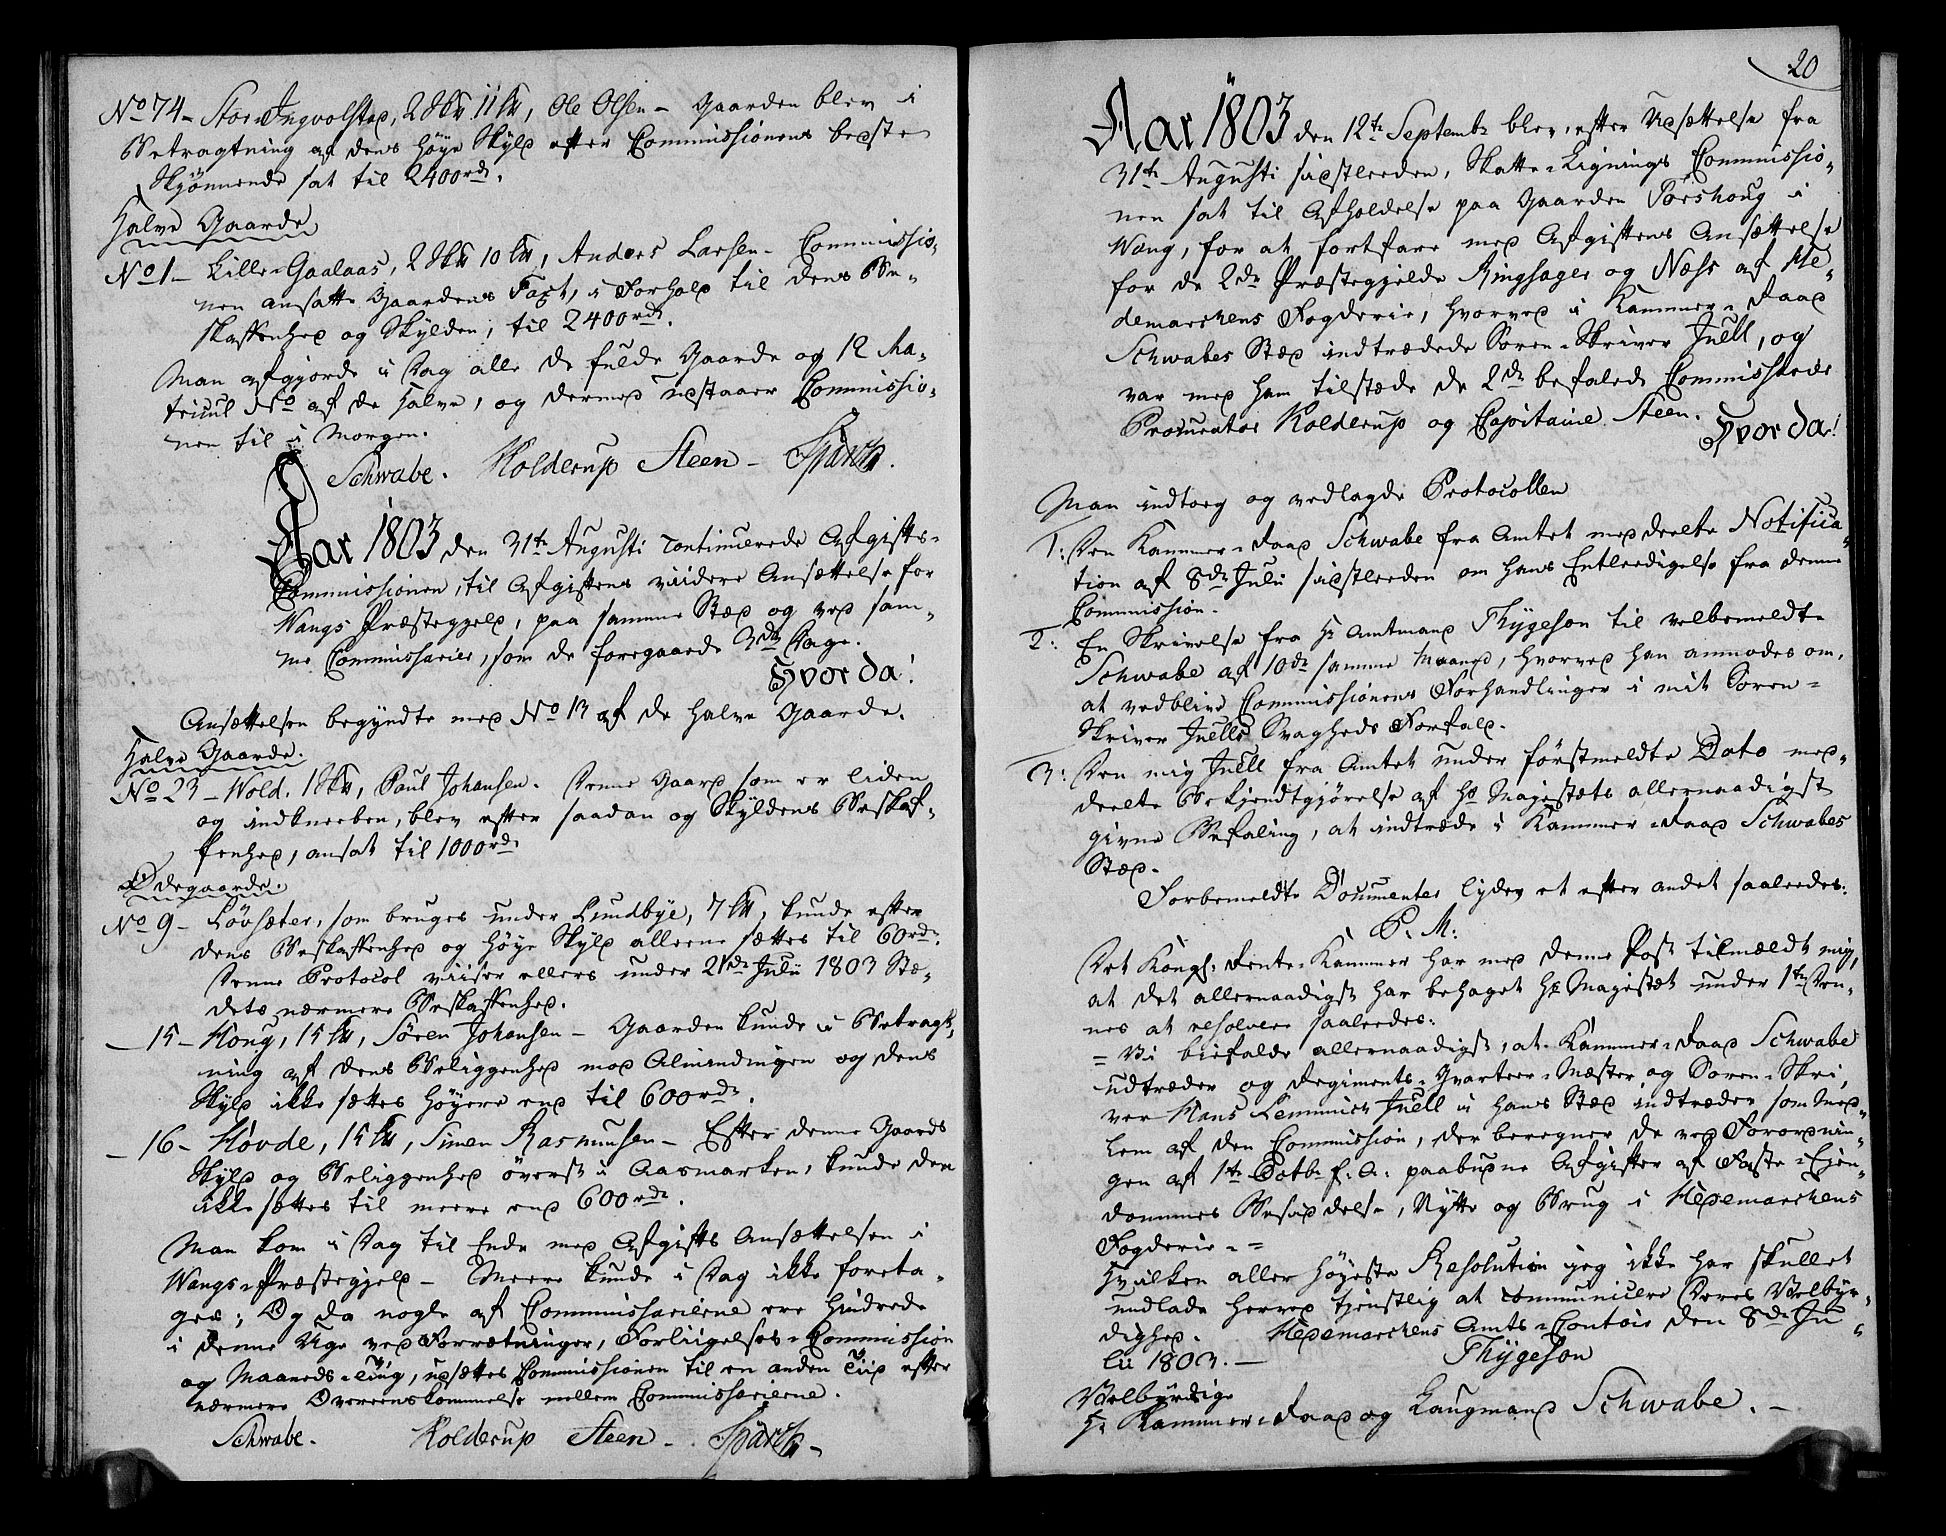 No 74 – Stor-Ingvolstad, 2 Skd 11 Ld, Ole Olsen – Gaarden blev i
Betragtning af dens høye Skyld efter Commissionens bedste
Skjønnende sat til 2400 rd.
Halve Gaarde
No 1 – Lille-Gaalaas, 2 Skd 10 Ld, Anders Larsen – Commissio-
nen ansatte Gaardens Taxt, i Forhold til dens Be-
skaffenhed og Skylden, til 2400 rd.
Man afgjorde i Dag alle de fulde Gaarde og 12 Ma-
tricul No af de Halve, og dermed udstaaer Commissio-
nen til i Morgen.
Schwabe. Kolderup Steen –
Aar 1803 den 31te Augusti continuerede Afgifts-
Commissionen, til Afgiftens viidere Ansættelse for
Wangs Præstegjeld, paa samme Stæd og ved sam-
me Commissarier, som de foregaaende 3de Dage.
Hvor da!
Ansættelsen begyndte med No 13 af de halve Gaarde.
Halve Gaarde.
No 23 – Wold. 1 Skd, Paul Johansen. Denne Gaard som er liden
og indkneeben, blev efter saadan og Skyldens Beskaf-
fenhed, ansat til 1000 rd
Ødegaarde.
No 9 – Løvsæter, som bruges under Lundbye, 7 Ld, kunde efter
dens Beskaffenhed og høye Skyld alleene sættes til 60 rd.
Denne Protocol viiser ellers under 21de Julii 1803 Stæ-
dets nærmere Beskaffenhed.
– 15 – Houg, 15 Ld, Søren Johansen – Gaarden kunde i Betragt-
ning af dens Beliggenhed mod Almindingen og dens
Skyld ikke sættes høyere end til 600 rd.
– 16 – Hovde, 15 Ld, Simen Rasmussen – Efter denne Gaards
Skyld og Beliggenhed øverst i Aasmarken, kunde den
ikke sættes til meere end 600 rd.
Man kom i Dag til Ende med Afgifts Ansættelsen i
Wangs-Præstegjeld – Meere kunde i Dag ikke foreta-
ges; Og da nogle af Commissarierne ere hindrede
i denne Uge ved Forretninger, Forliigelses-Commission
og Maaneds-Ting, udsættes Commissionen til en anden Tiid efter
nærmere Overeenskommelse mellem Commissarierne.
Schwabe. Kolderup Steen –
20
Aar 1803 den 12te Septembr blev, efter Udsættelse fra
31te Augusti sidstleeden, Skatte-Lignings Commissio-
nen sat til Afholdelse paa Gaarden Torshoug i
Wang, for at fortfare med Afgiftens Ansættelse
for de 2de Præstegjelde Ringsager og Næss af He-
demarchens Fogderie, hvorved i Kammer-Raad
Schwabes Stæd indtrædede Soren-Skriver Juell, og
var med ham tilstæde de 2de befalede Commissærer
Procurator Kolderup og Capitaine Steen. Hvor da!
Man indtog og vedlagde Protocollen
1: Den Kammer-Raad Schwabe fra Amtet meddeelte Notifica-
tion af 8de Julii sidstleeden om hans Entleedigelse fra denne
Commission.
2: En Skrivelse fra Hr Amtmand Thygeson til velbemeldte
Schwabe af 10de samme Maaned, hvorved han anmodes om,
at vedblive Commissionens Forhandlinger i mit Soren-
Skriver Juells Svagheds Forfald.
3: Den mig Juell fra Amtet under førstmeldte Dato med-
deelte Bekjendtgjørelse af Hs Majestæts allernaadigst
givne Befaling, at indtræde i Kammer-Raad Schwabes
Stæd.
Forbemeldte Documenter lyder et efter andet saaleedes:
P. M:
Det Kongl: Rente-Kammer har med denne Post tilmældt mig,
at det allernaadigst har behaget Hs Majestæt under 1te Den-
nes at resolvere saaleedes:
= Vi biefalde allernaadigst, at Kammer-Raad Schwabe
udtræder og Regiments-Qvarteer-Mester og Soren-Skri-
ver Hans Lemmich Juell i hans Stæd indtræder som Med-
lem af den Commission, der beregner de ved Forordnin-
gen af 1te Octbr f. A: paabudne Afgifter af Faste-Ejen-
dommes Besiddelse, Nytte og Brug i Hedemarchens
Fogderie - =
Hvilken aller høyeste Resolution jeg ikke har skullet
undlade herved tjenstlig at communicere Deres Velbyr-
dighed. Hedemarchens Amts-Contoir den 8de Ju-
lii 1803. – Thygeson
Velbyrdige
Hr Kammer-Raad og Laugmand Schwabe. –